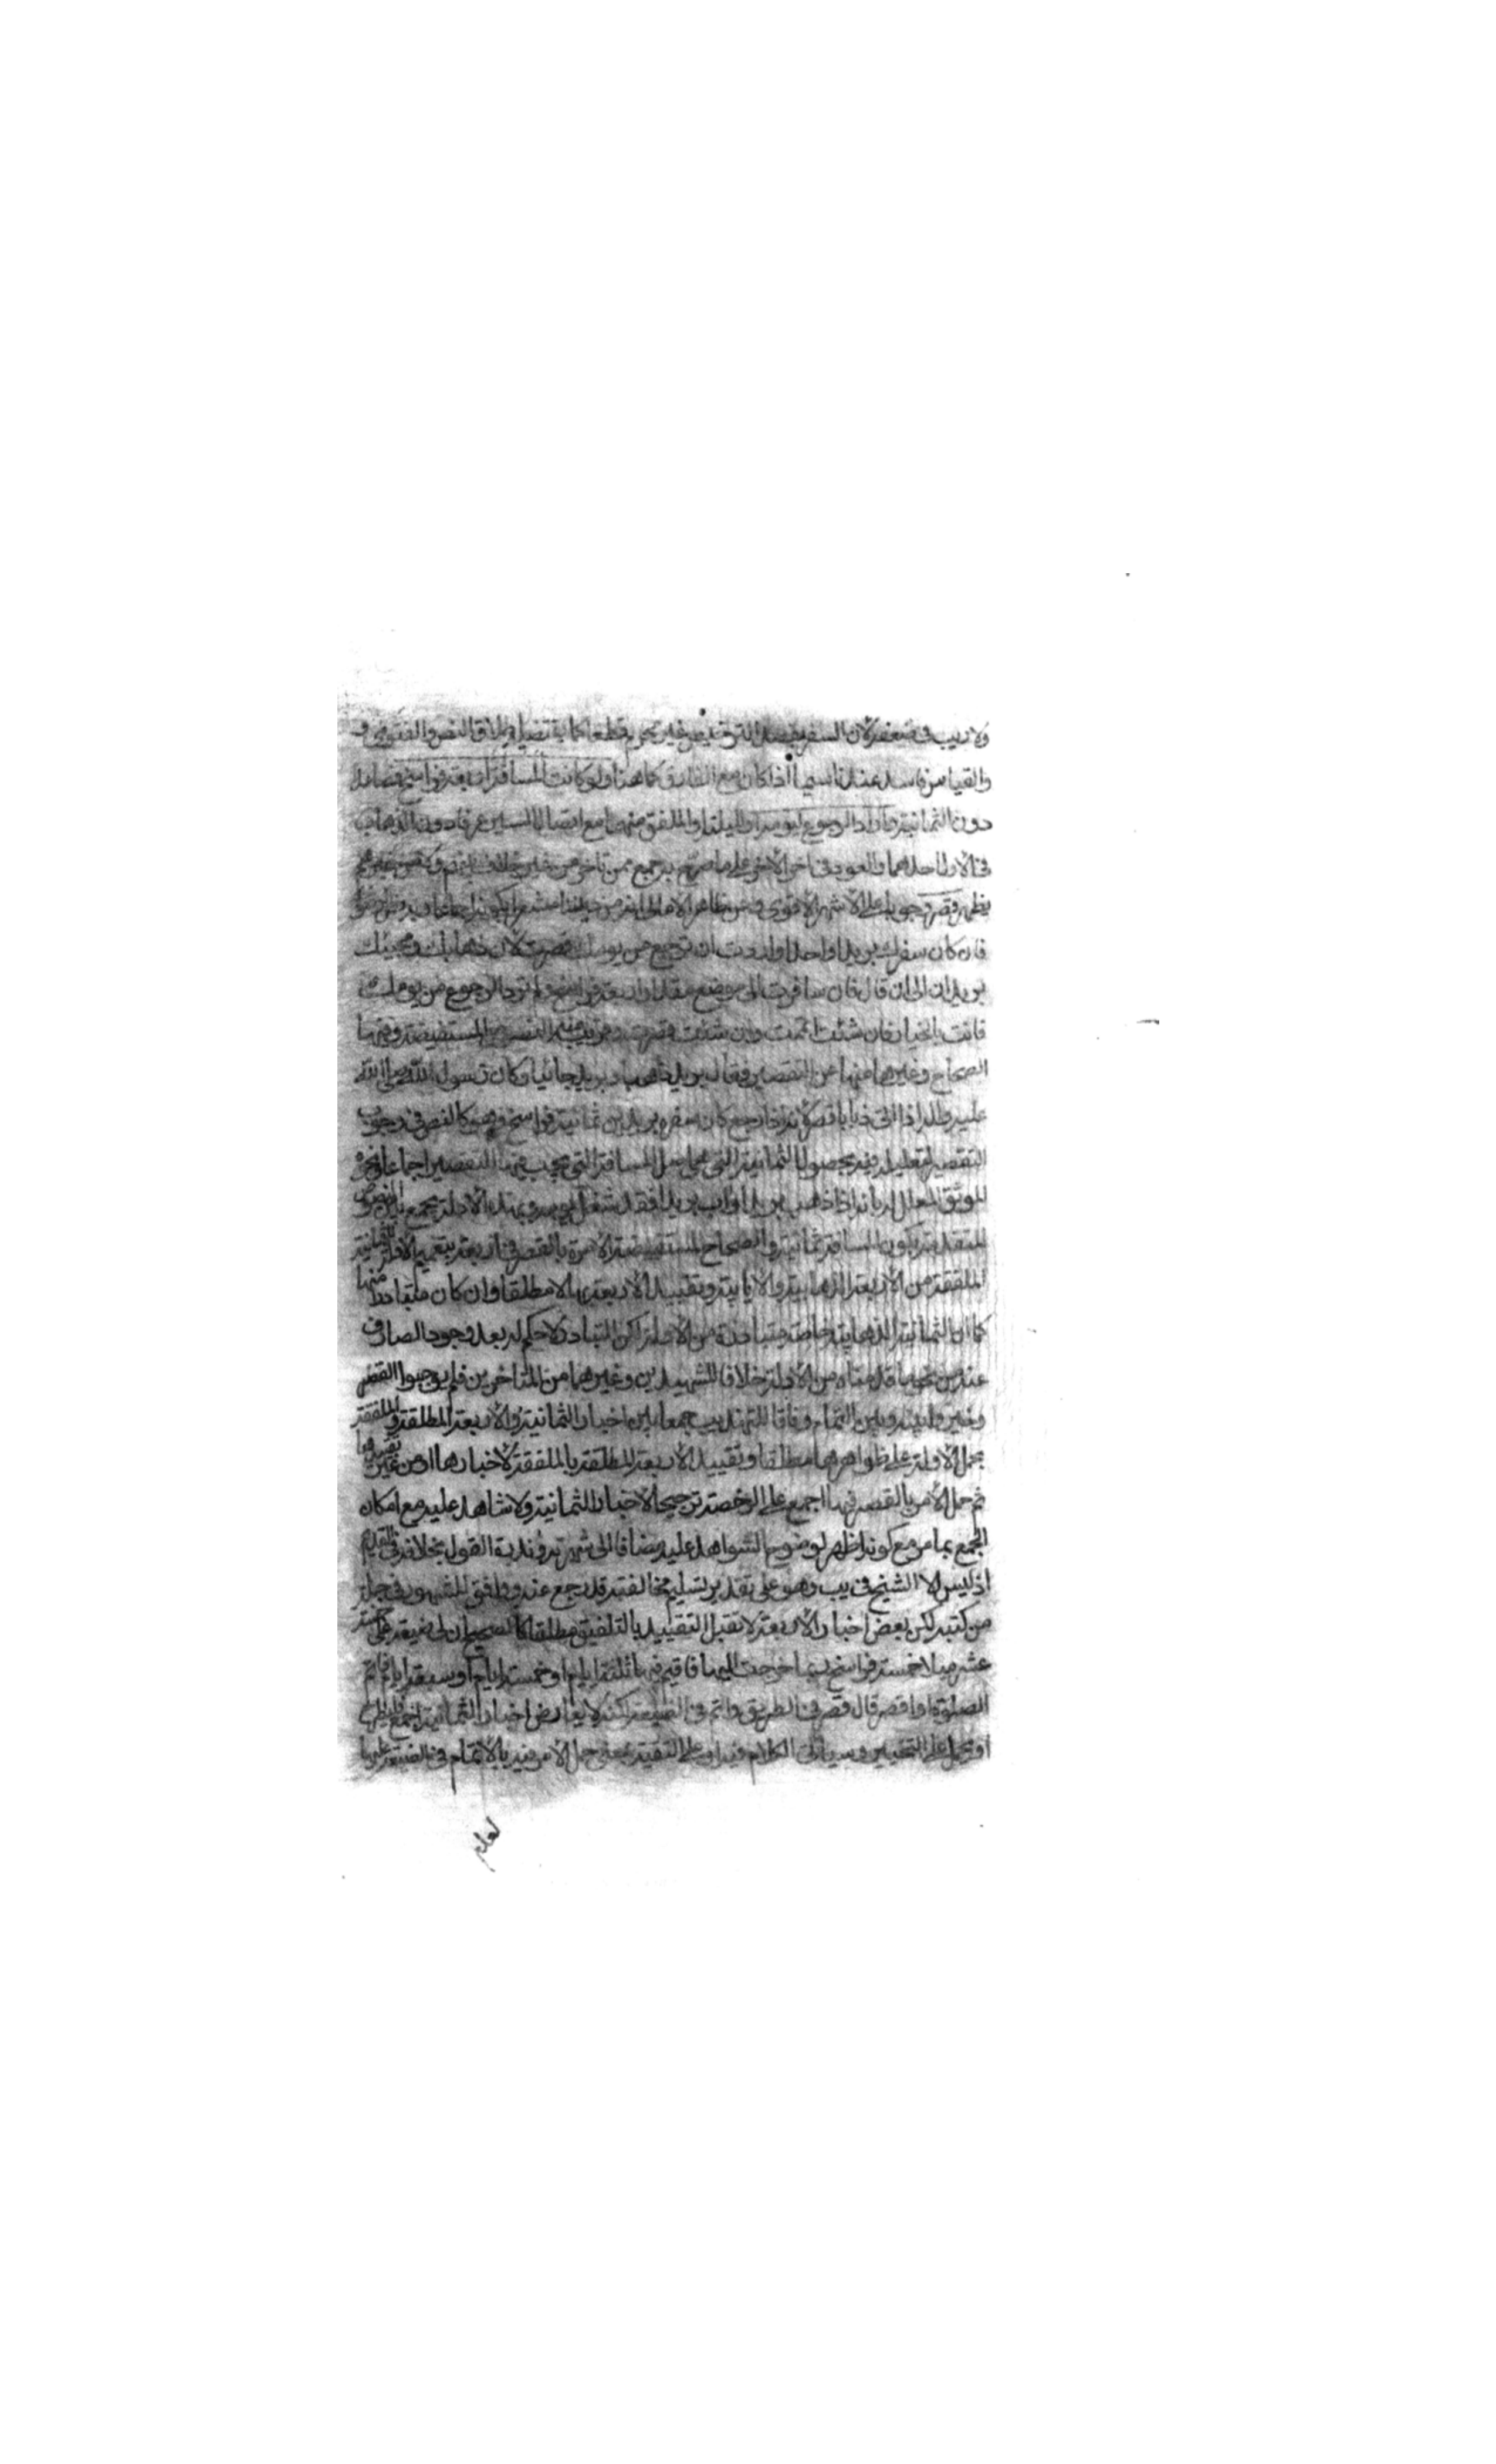 ولا ريب في ضعفه لان السفر بقصد الترخيص غير محرم قطعا كما يقتضيه اطلاق النص والفتوى
والقياس فاسد عندنا سيما اذا كان مع الفارق كما هنا ولو كانت المسافة اربعة فراسخ فصاعدا
دون الثمانية واراد الرجوع ليومه او لليلته او الملفق منهما مع اتصال السير عرفا دون الذهاب
في الاول احدهما والعود في اخر الاخر على ما صرح به جمع ممن تاخر من غير خلاف بينهم
يظهر قصر وجوبا على الاشهر الاقوى وعن ظاهر الامالي انه من ديننا مشعرا بكونه اجماعا
فان كان سفرك بريدا واحدا واردت ان ترجع من يومك قصرت لان ذهابك ومجيئك
بريدان الى ان قال فان سافرت الى موضع مقدار اربعة فراسخ ولم ترد الرجوع من يومك
فانت بالخيار فان شئت اتممت وان شئت قصرت المستفيضة وفيها
الصحاح وغيرها منها عن التقصير فقال بريد ذاهب وبريد جائيا وكان رسول الله صلى الله
عليه واله اذا اتى ذبابا قصر لانه اذا رجع كان سفره بريدين ثمانية فراسخ وهي كالنص في وجوب
التقصير لتعليله فيه بحصول الثمانية التي هي اصل المسافة التي يجب فيها التقصير اجماعا ونحوه
الموثق المعلل له بانه اذا ذهب بريدا واب بريدا فقد شغل يومه وبهذه الادلة يجمع بين النصوص
المتقدمة بكون المسافة ثمانية والصحاح المستفيضة الامرة بالقصر في اربعة بتعميم الاولة للثمانية
الملفقة من الاربعة الذهابية والايابية وتقييد الاربعة بها لا مطلقا وان كان متبادرا منها
كما ان الثمانية الذهابية خاصة متبادرة من الاولة لكن التبادر لا حكم له بعد وجود الصارف
عنه من نحو ما قدمناه من الادلة خلافا للشهيدين وغيرهما من المتاخرين فلم يوجبوا القصر
وخيروا بينه وبين التمام وفاقا للتهذيب جمعا بين اخبار الثمانية والاربعة المطلقة والملفقة
بحمل الاولة على ظواهرها مطلقا وتقييد الاربعة المطلقة بالملفقة لاخبارها من غير
ثم حمل الامر بالقصر فيها اجمع على الرخصة ترجيحا لاخبار الثمانية ولا شاهد عليه مع امكان
الجمع بما مر مع كونه اظهر لوضوح الشواهد عليه مضافا الى شهرته وندرة القول بخلافه في القديم
اذ ليس الا الشيخ في يب وهو على تقدير تسليم مخالفته قد رجع عنه ووافق المشهور في جملة
من كتبه لكن بعض اخبار الاربعة لا تقبل التقييد بالتلفيق مطلقا كالصحيح ان لي ضيعة على خمسة
عشر ميلا خمسة فراسخ ربما خرجت اليها فاقيم فيها ثلثة ايام او خمسة ايام او سبعة ايام فاتم
الصلوة او اقصر قال قصر في الطريق واتم في الضيعة لكنه لا يعارض اخبار الثمانية اجمع
او يحمل على التخيير وسياتي الكلام فيه او على التقية بمعنى حمل الامر فيه بالاتمام في الضيعة عليها